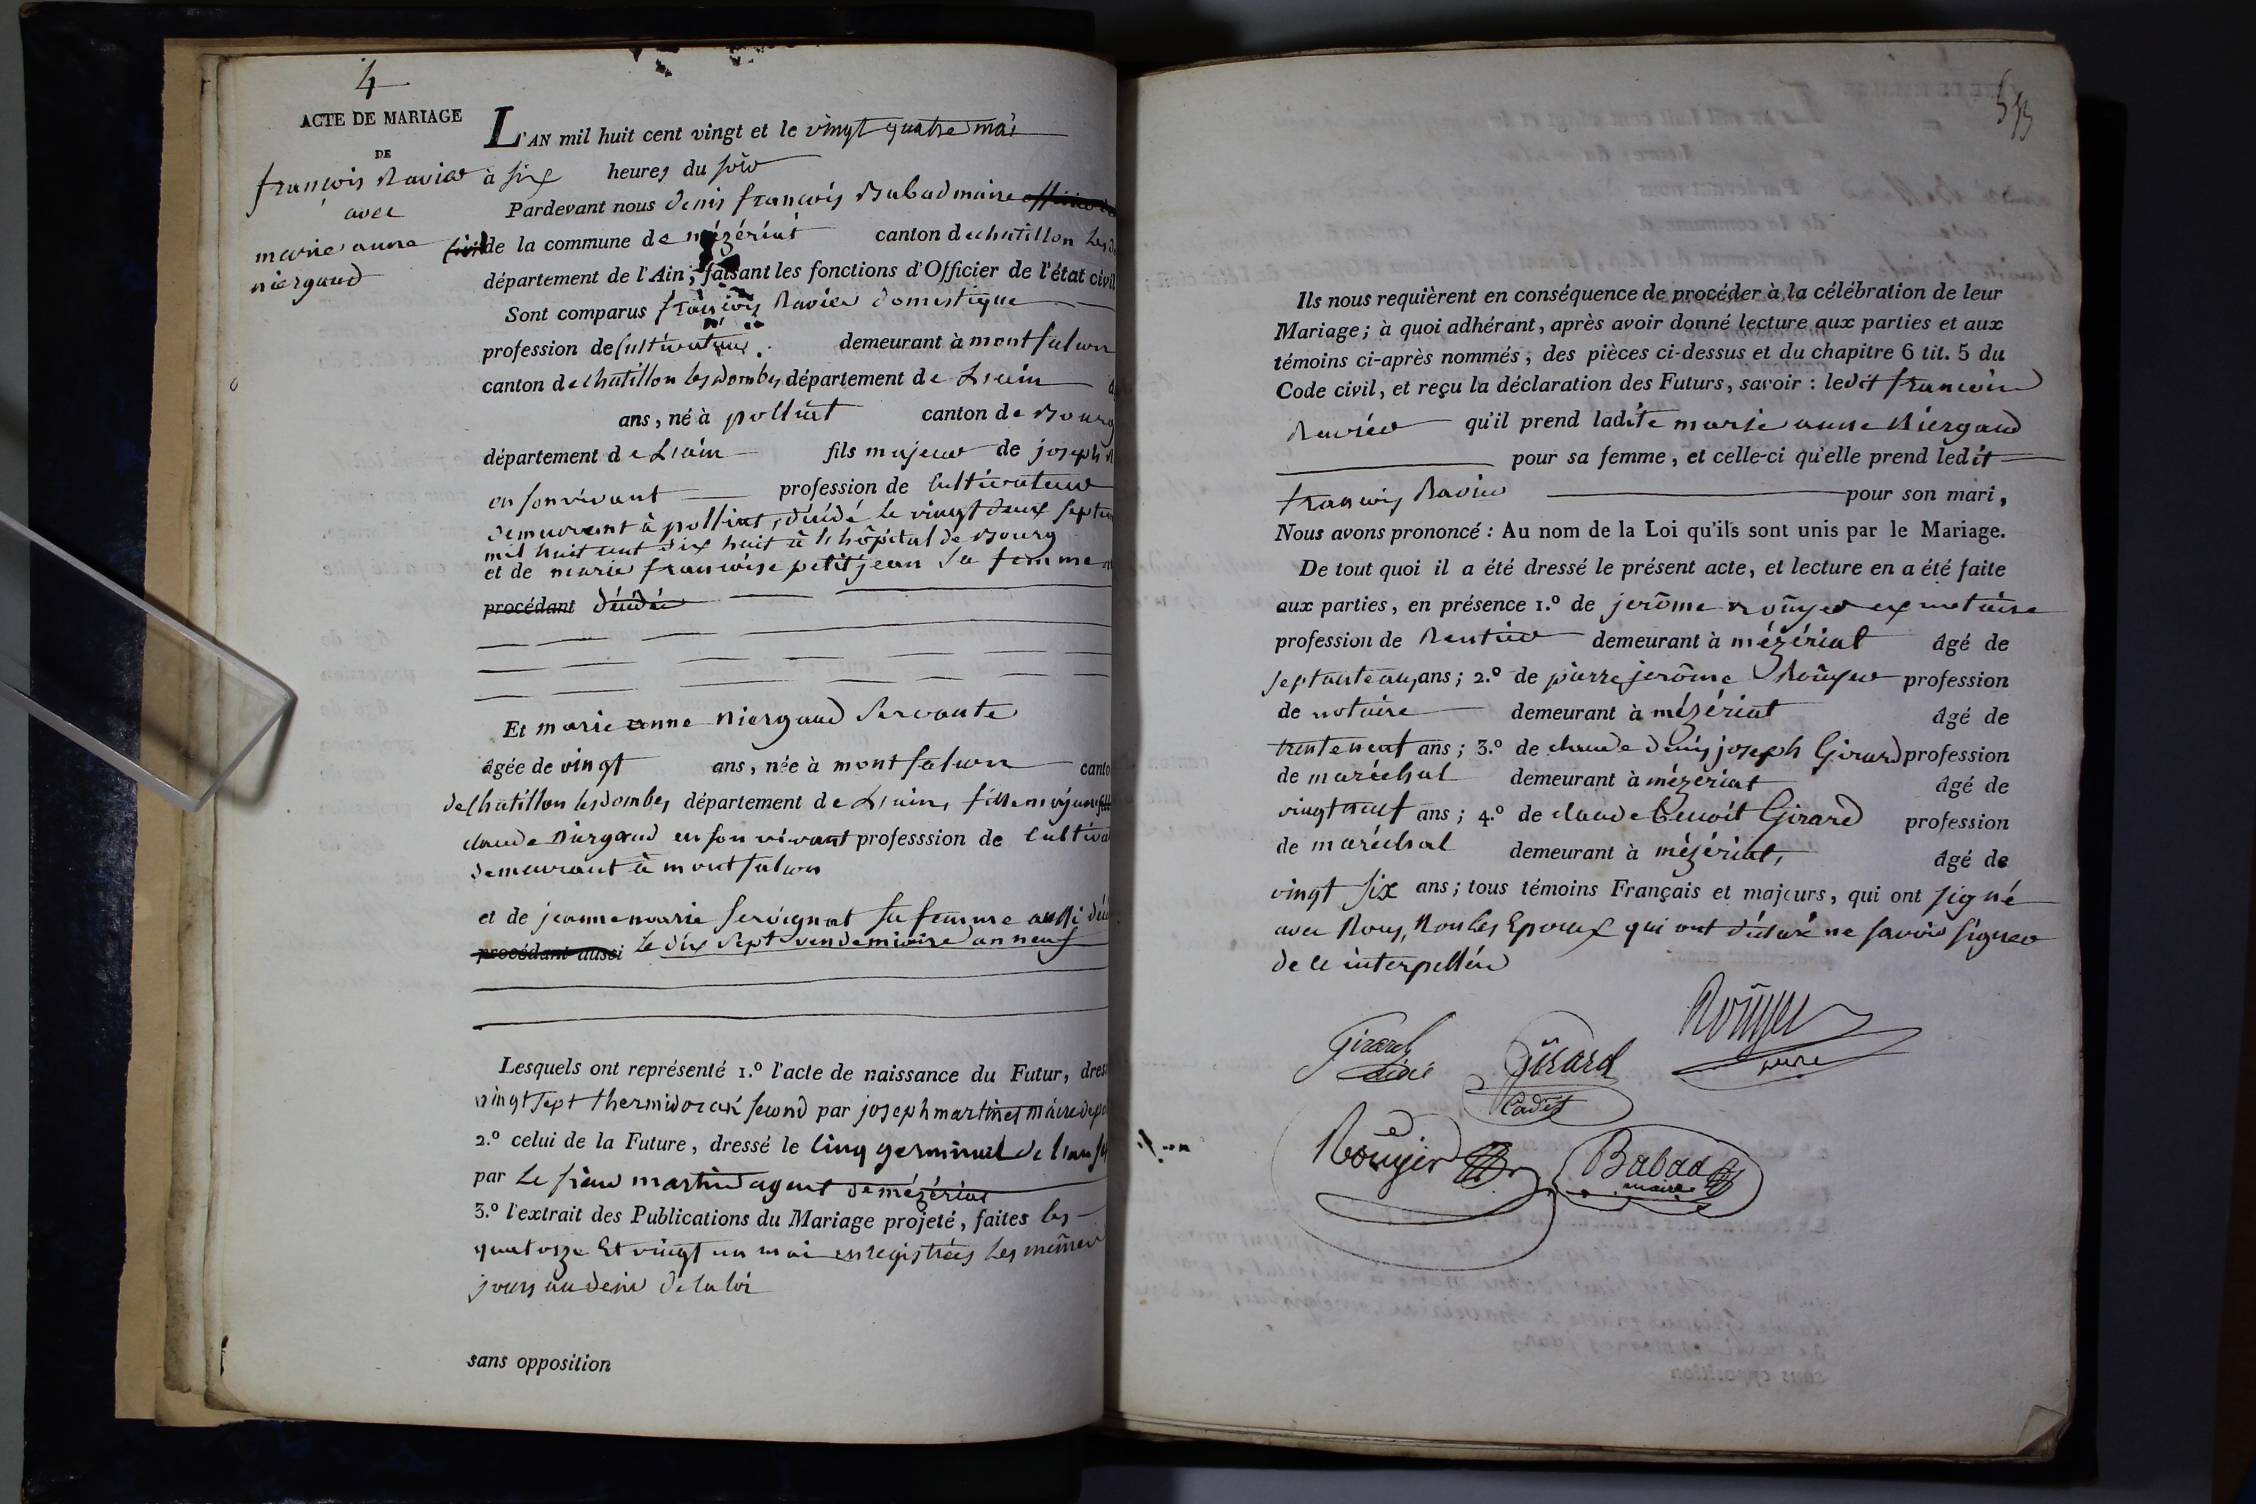 4
ACTE DE MARIAGE
DE
françois Ravier
avec
marie anne
niergaud
L'AN mil huit cent vingt et le vingt quatre mai
à six heures du soir
Pardevant nous denis françois Babad maire officier de
civil de la commune de mézériat canton de chatillon les d
département de l'Ain, faisant les fonctions d'Officier de l'état civil
Sont comparus françois Ravier domestique
profession de Cultivateur. demeurant à montfalcon
canton de chatillon les dombes département de L'ain
ans, né à polliat canton de Bourg
département de L'ain fils majeur de joseph
en son vivant profession de Cultivateur
demeurant à polliat, décédé le vingt deux septem
mil huit cent dix huit à l'hôpital de Bourg
et de marie françoise petitjean sa femme
procédant décédée
Et marie anne niergaud servante
âgée de vingt ans, née à montfalcon canto
de Chatillon les dombes département de L'ain, fille mineure
claude Niergaud en son vivant professsion de Cultiva
demeurant à montfalcon
et de jeanne marie servignat sa femme aussi décé
procédant aussi le dix sept vendemiaire an neuf
Lesquels ont représenté 1.º l'acte de naissance du Futur, dres
vingt sept thermidor an second par joseph martinet maire de po
2.º celui de la Future, dressé le Cinq germinal de l'an
par le sieur martin agent de mézériat
3.º l'extrait des Publications du Mariage projeté, faites les
quatorze Et vingt un mai enregistrées les mêmes
jours au desir de la loi
sans opposition
Ils nous requièrent en conséquence de procéder à la célébration de leur
Mariage; à quoi adhérant, après avoir donné lecture aux parties et aux
témoins ci-après nommés, des pièces ci-dessus et du chapitre 6 tit. 5 du
Code civil, et reçu la déclaration des Futurs, savoir : ledit francois
Ravier qu'il prend ladite marie anne Niergaud
pour sa femme, et celle-ci qu'elle prend ledit
françois Ravier pour son mari,
Nous avons prononcé : Au nom de la Loi qu'ils sont unis par le Mariage.
De tout quoi il a été dressé le présent acte, et lecture en a été faite
aux parties, en présence 1.º de jerôme Roüyer ex notaire
profession de Rentier demeurant à mézériat âgé de
septante ans; 2.º de pierre jerôme Roüyer profession
de notaire demeurant à mézériat âgé de
trente neuf ans; 3.º de claude denis joseph Girard profession
de maréchal demeurant à mézériat âgé de
vingt neuf ans; 4.º de claude Benoit Girard profession
de maréchal demeurant à mézériat, âgé de
vingt six ans; tous témoins Français et majeurs, qui ont signé
avec Nous, Non les Epoux qui ont déclaré ne savoir signer
de ce interpellés
Girard
ainé
Girard
Cadet
Roüyer
pere
Roüyer
Babad
maire